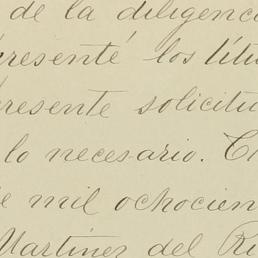 de la diligenc
resenté los títu
resente solicitu
lo necesario. C
e mil ochocien
Martinez del Ri